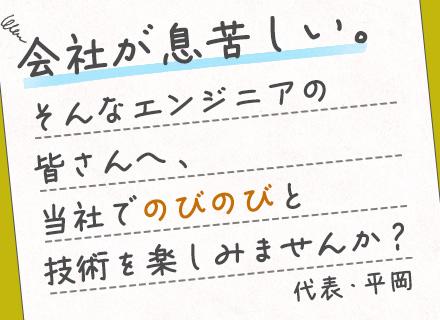 会社が息苦しい。
そんなエンジニアの
皆さんへ、
当社でのびのびと
技術を楽しみませんか？
代表・平岡